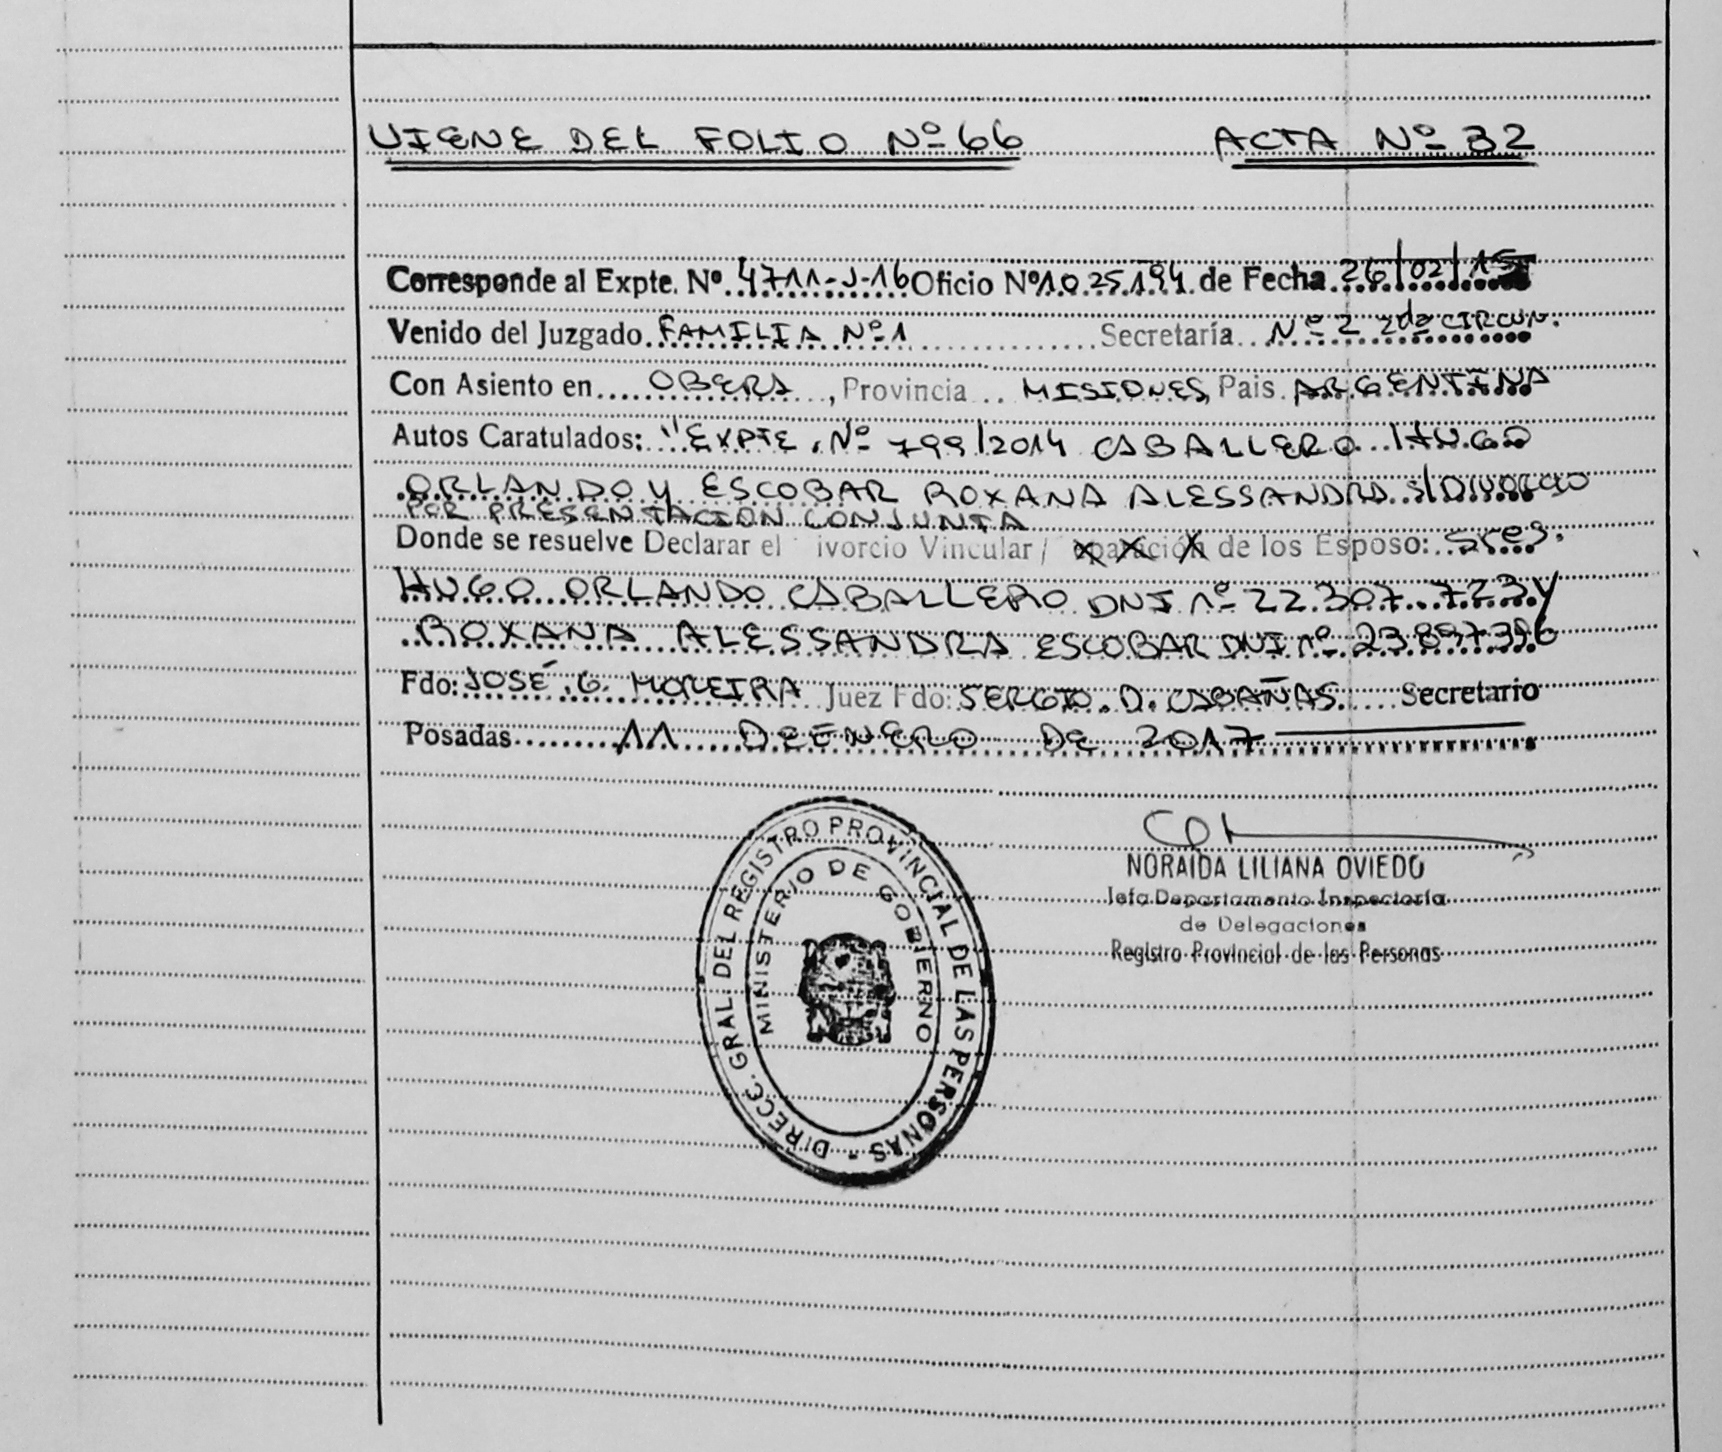 VIENE DEL FOLIO Nº 66 ACTA Nº 32
Corresponde al Expte. Nº 4711-J-16 Oficio Nº 1025194 de Fecha 26/02/15
Venido del Juzgado FAMILIA Nº 1 Secretaría Nº 2 2da CIRCUN.
Con Asiento en OBERA, Provincia MISIONES, Pais ARGENTINA
Autos Caratulados: "EXPTE. Nº 799/2014 CABALLERO HUGO
ORLANDO Y ESCOBAR ROXANA ALESSANDRA S/DIVORCIO
POR PRESENTACION CONJUNTA
Donde se resuelve Declarar el ivorcio Vincular / de los Esposo: Sres.
HUGO ORLANDO CABALLERO DNI nº 22.307.723 Y
ROXANA ALESSANDRA ESCOBAR DNI nº 23.897.396
Fdo: JOSÉ G. MOREIRA Juez Fdo: SERGIO D. CABAÑAS Secretario
Posadas 11 DE ENERO DE 2017
DIRECC. GRAL. DEL REGISTRO PROVINCIAL DE LAS PERSONAS -
MINISTERIO DE GOBIERNO
NORAIDA LILIANA OVIEDO
Jefa Departamento Inspectoría
de Delegaciones
Registro Provincial de las Personas